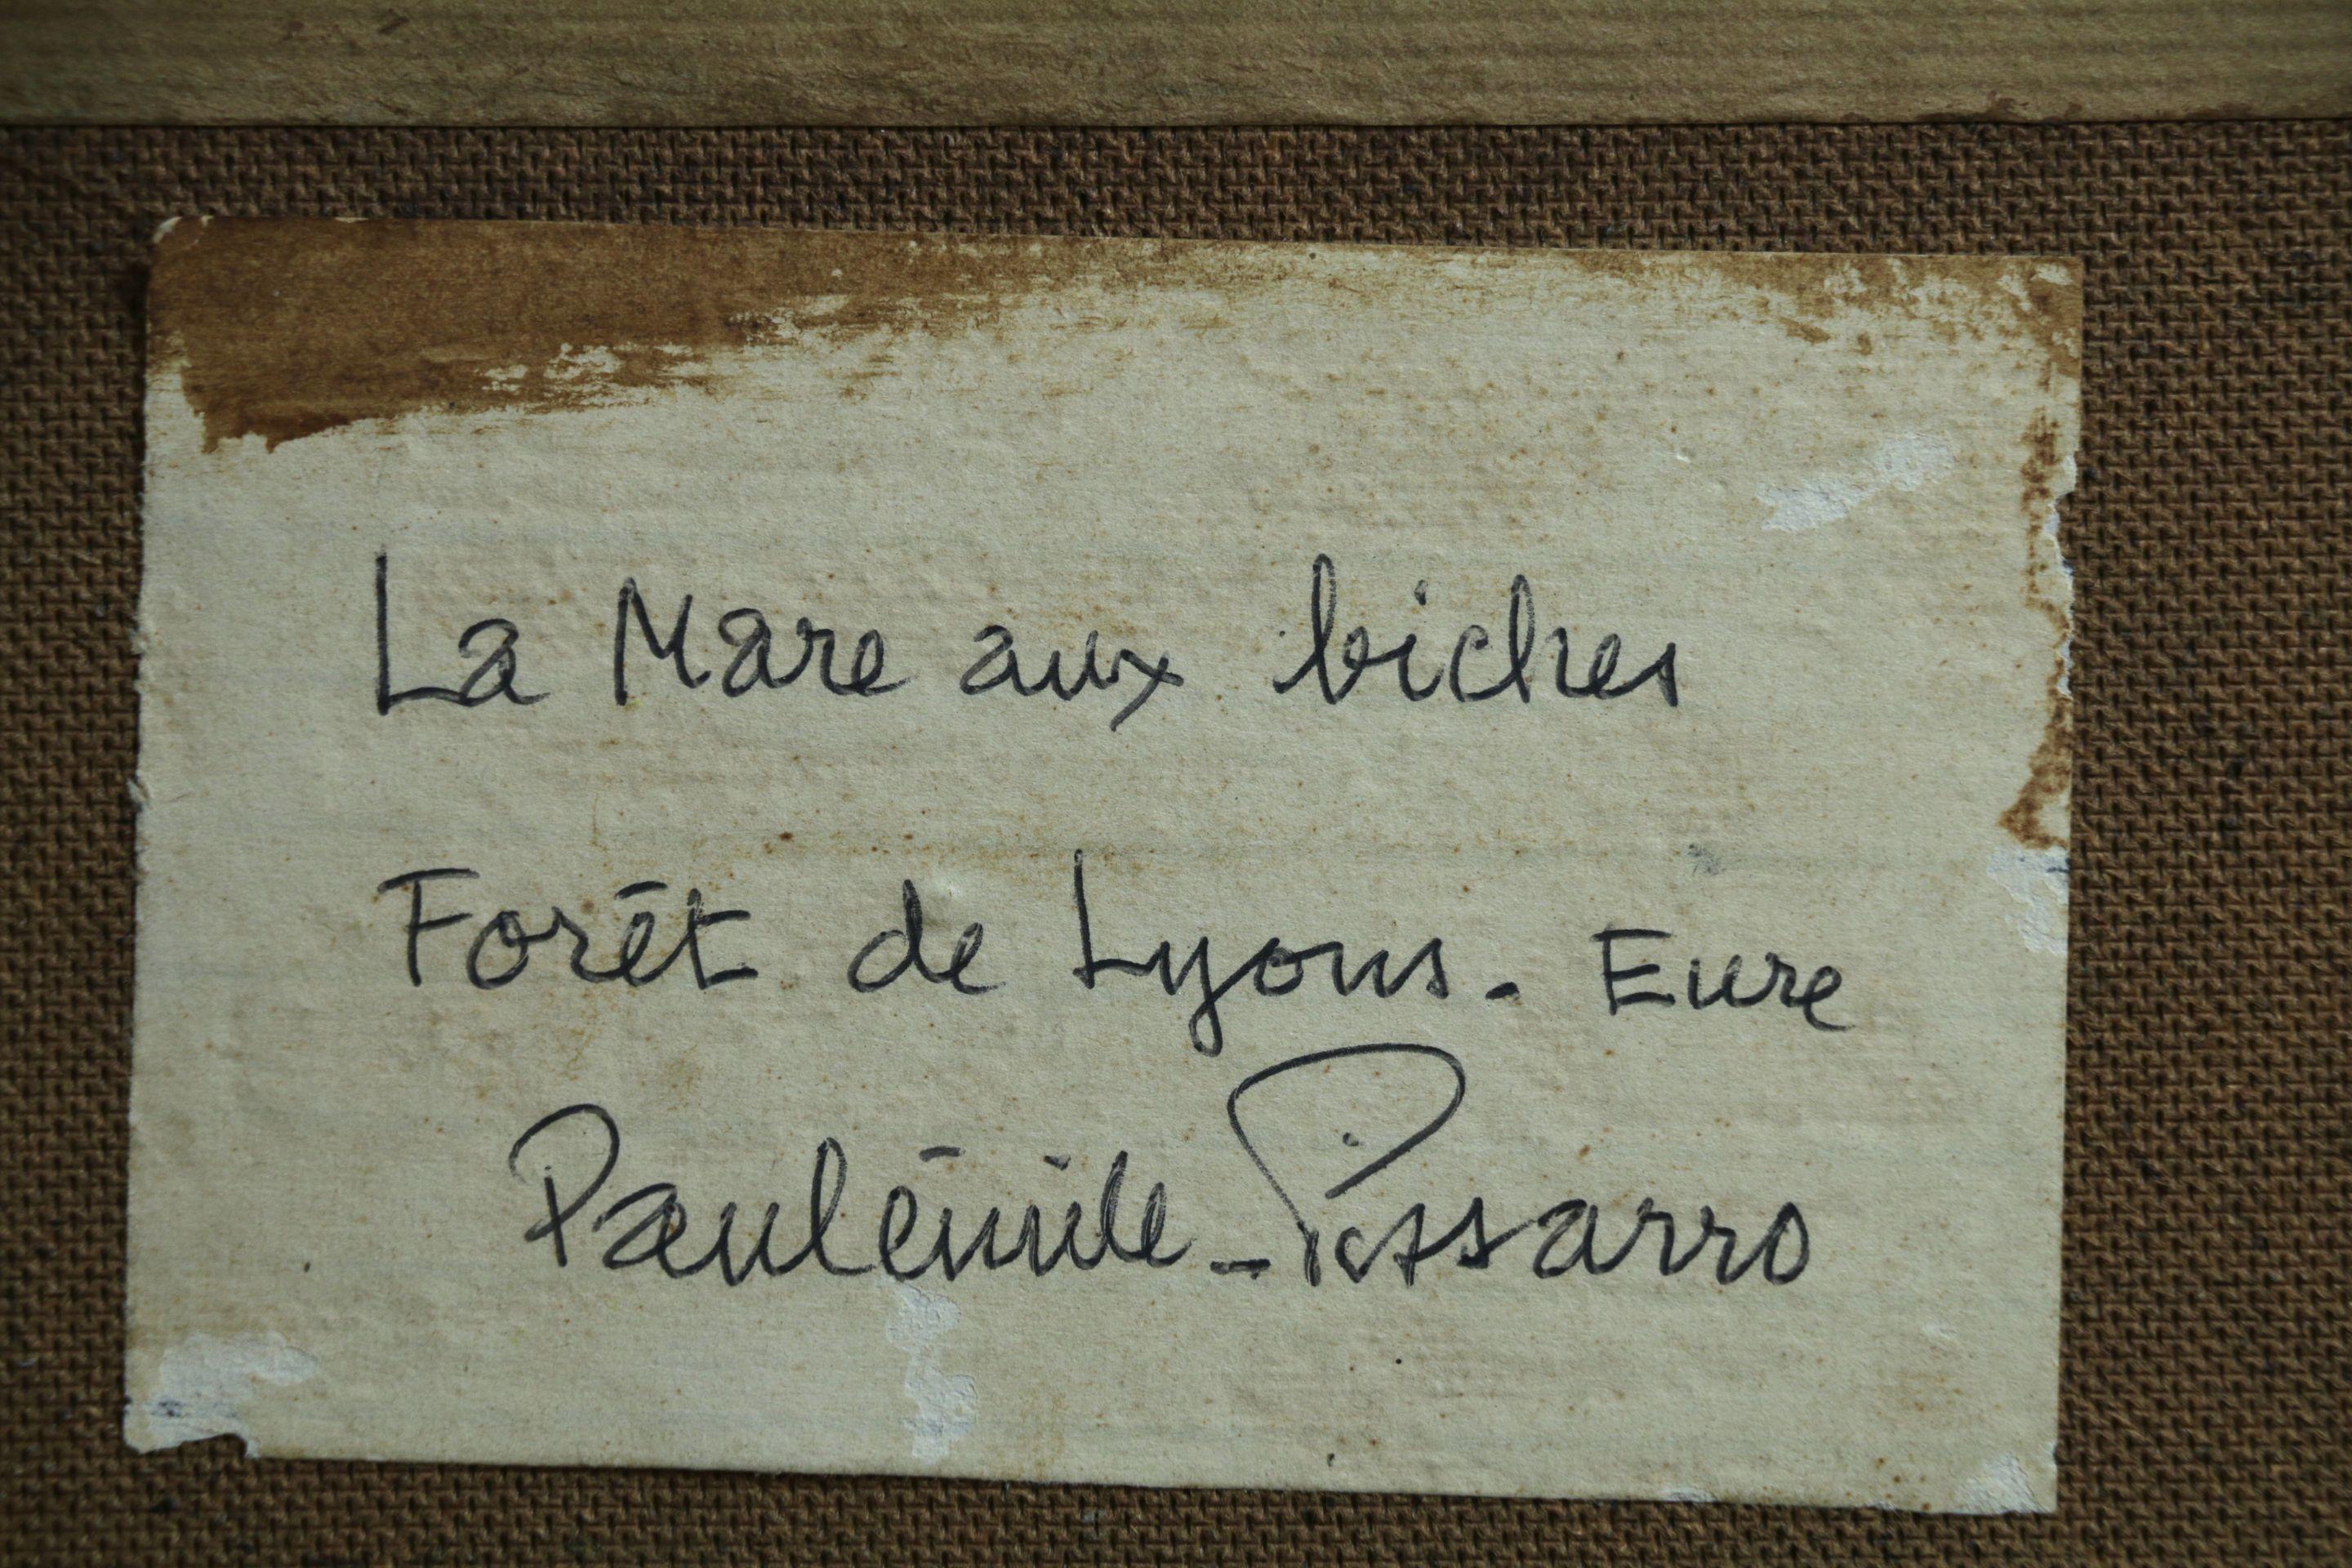 La Mare aux biches
Forêt de Lyons. Eure
Paulémile_Pissarro